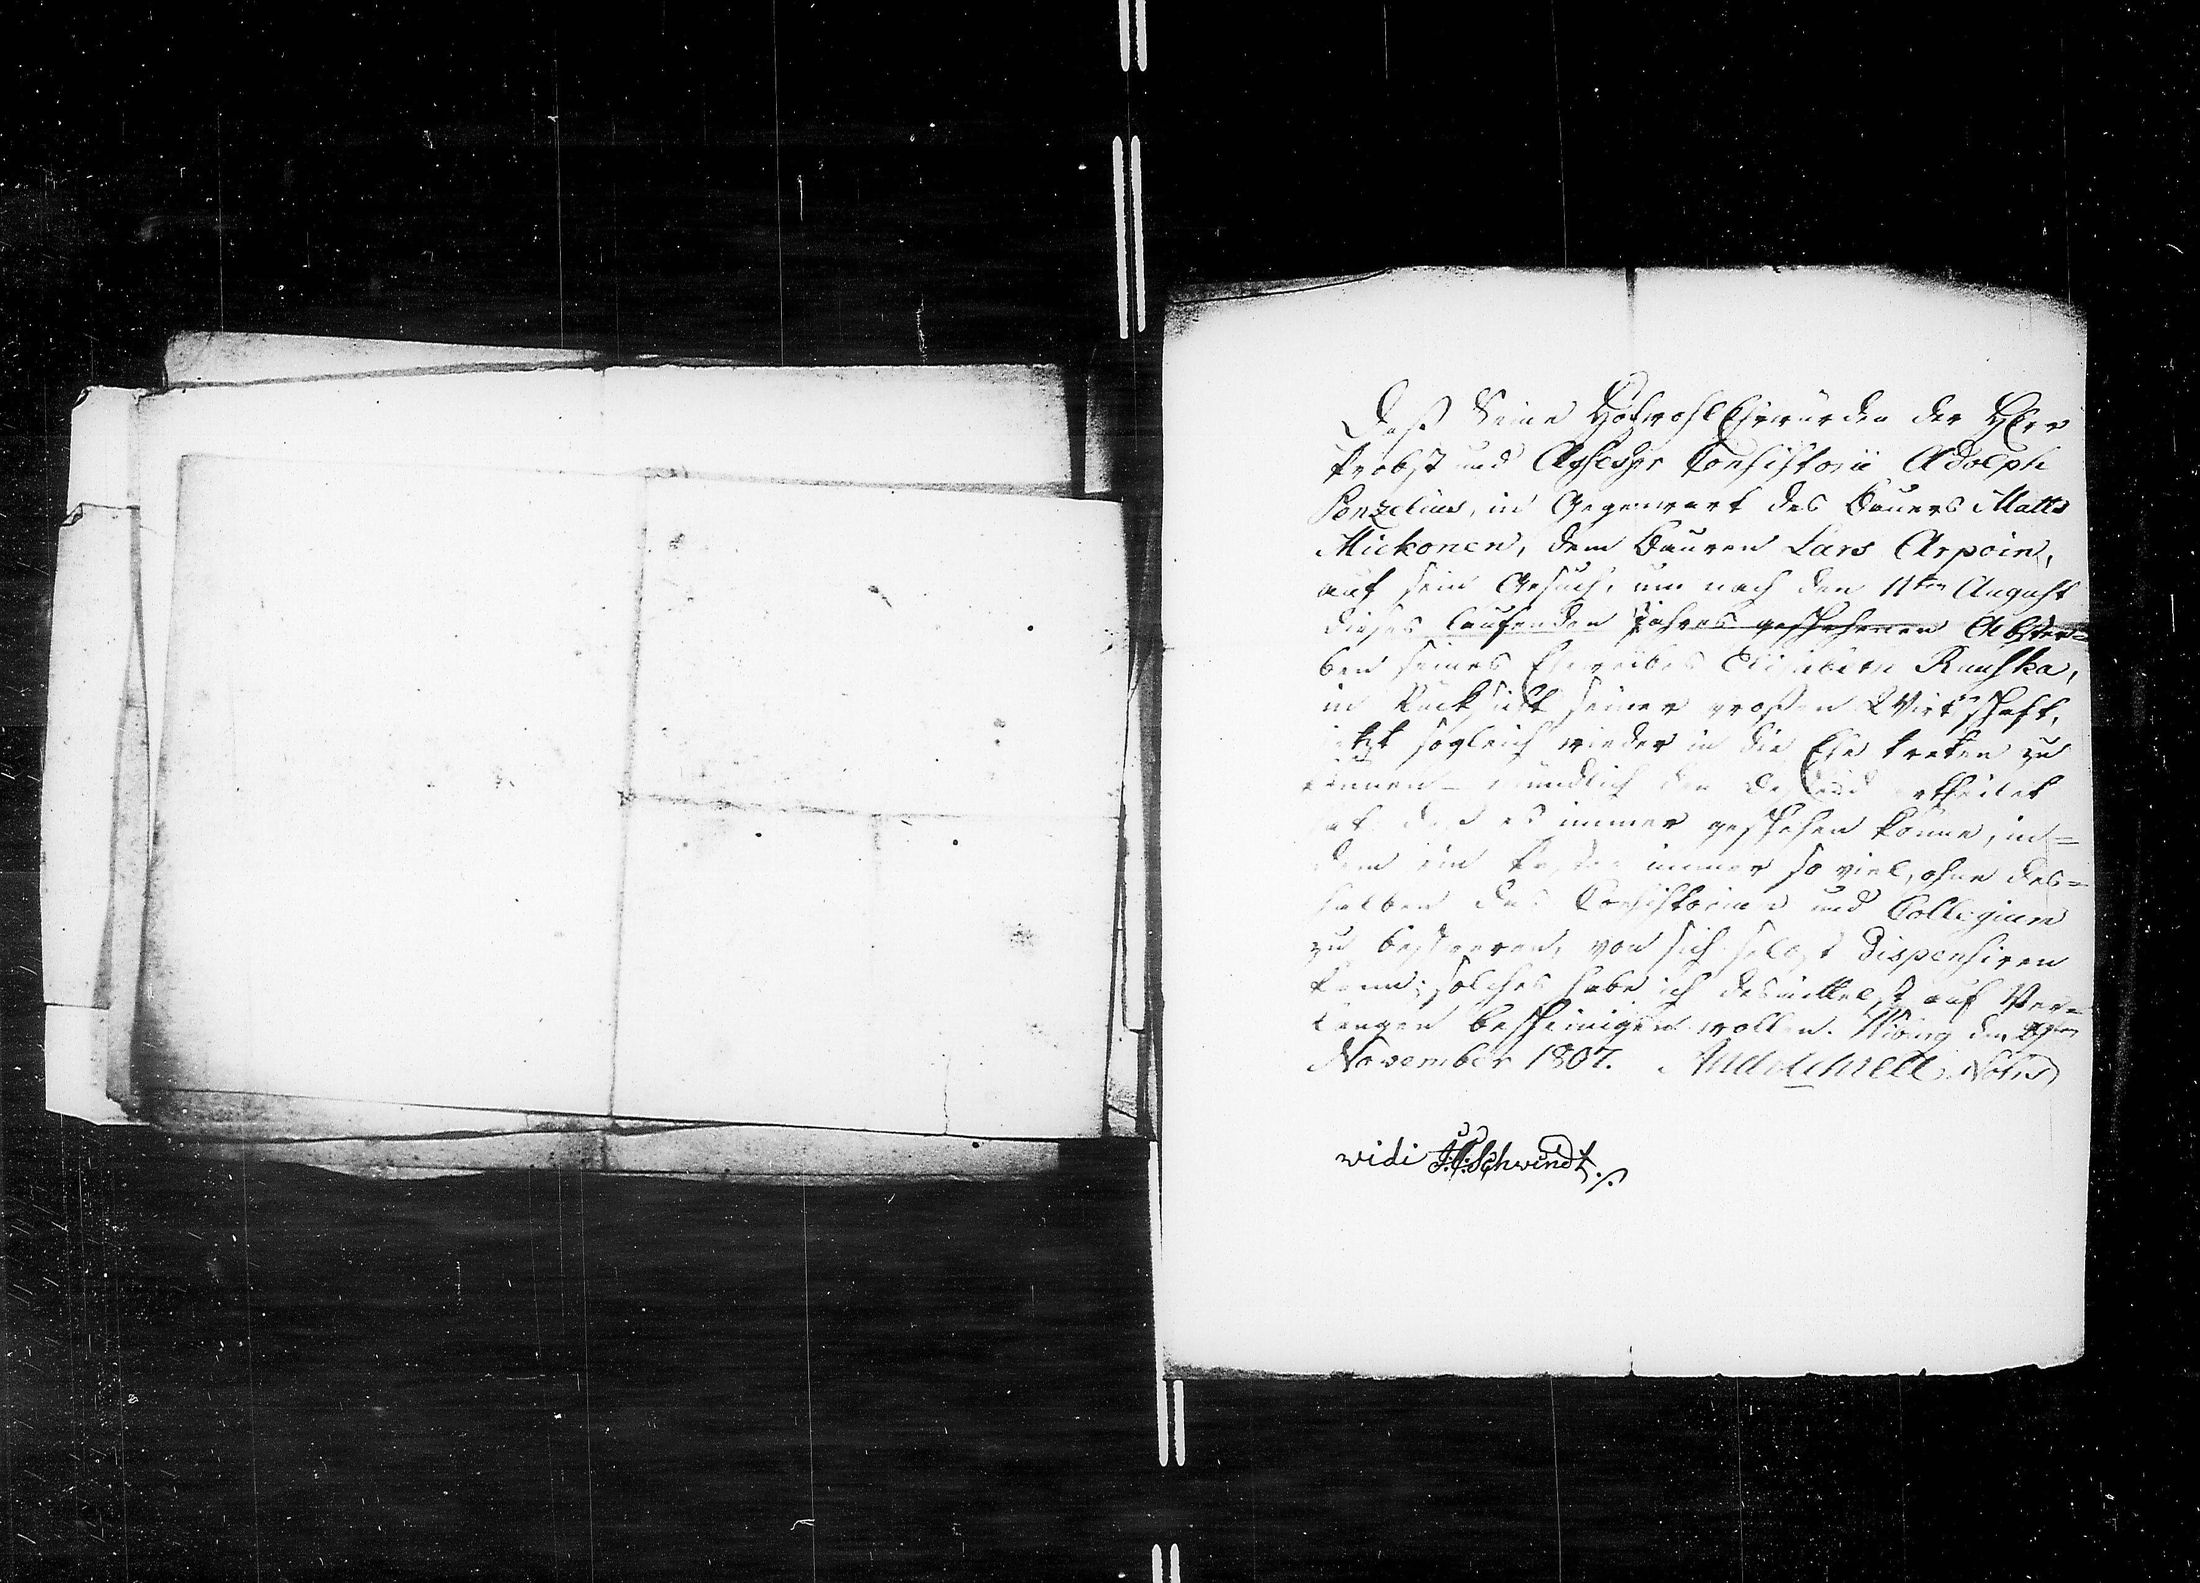 Daß Seine HochwohlEhrwürden der HErr
Probst und Assessor Consistorii Adolph
Ponzelius, in Gegenwart des Bauers Matts
Mickonen, dem Bauren Lars Arpoin,
auf sein Gesuch, um nach den 11ten August
dieses laufenden Jahres geschehenen Abster=
ben seines Eheweibes Ruuska,
in Rücksicht seiner großen Wirtschaft,
jetzt sogleich wieder in die Ehe treten zu
können – mündlich den Bescheid ertheilet
hat daß es immer geschehen könne, in=
dem ein immer so viel, ohne des=
halben das Consistorium und Collegium
zu beschweren, von sich selbst dispensiren
kann; solches habe ich desmittelst auf Ver=
langen bescheinigen wollen. Wiburg den
November 1807.
widi Schwindt